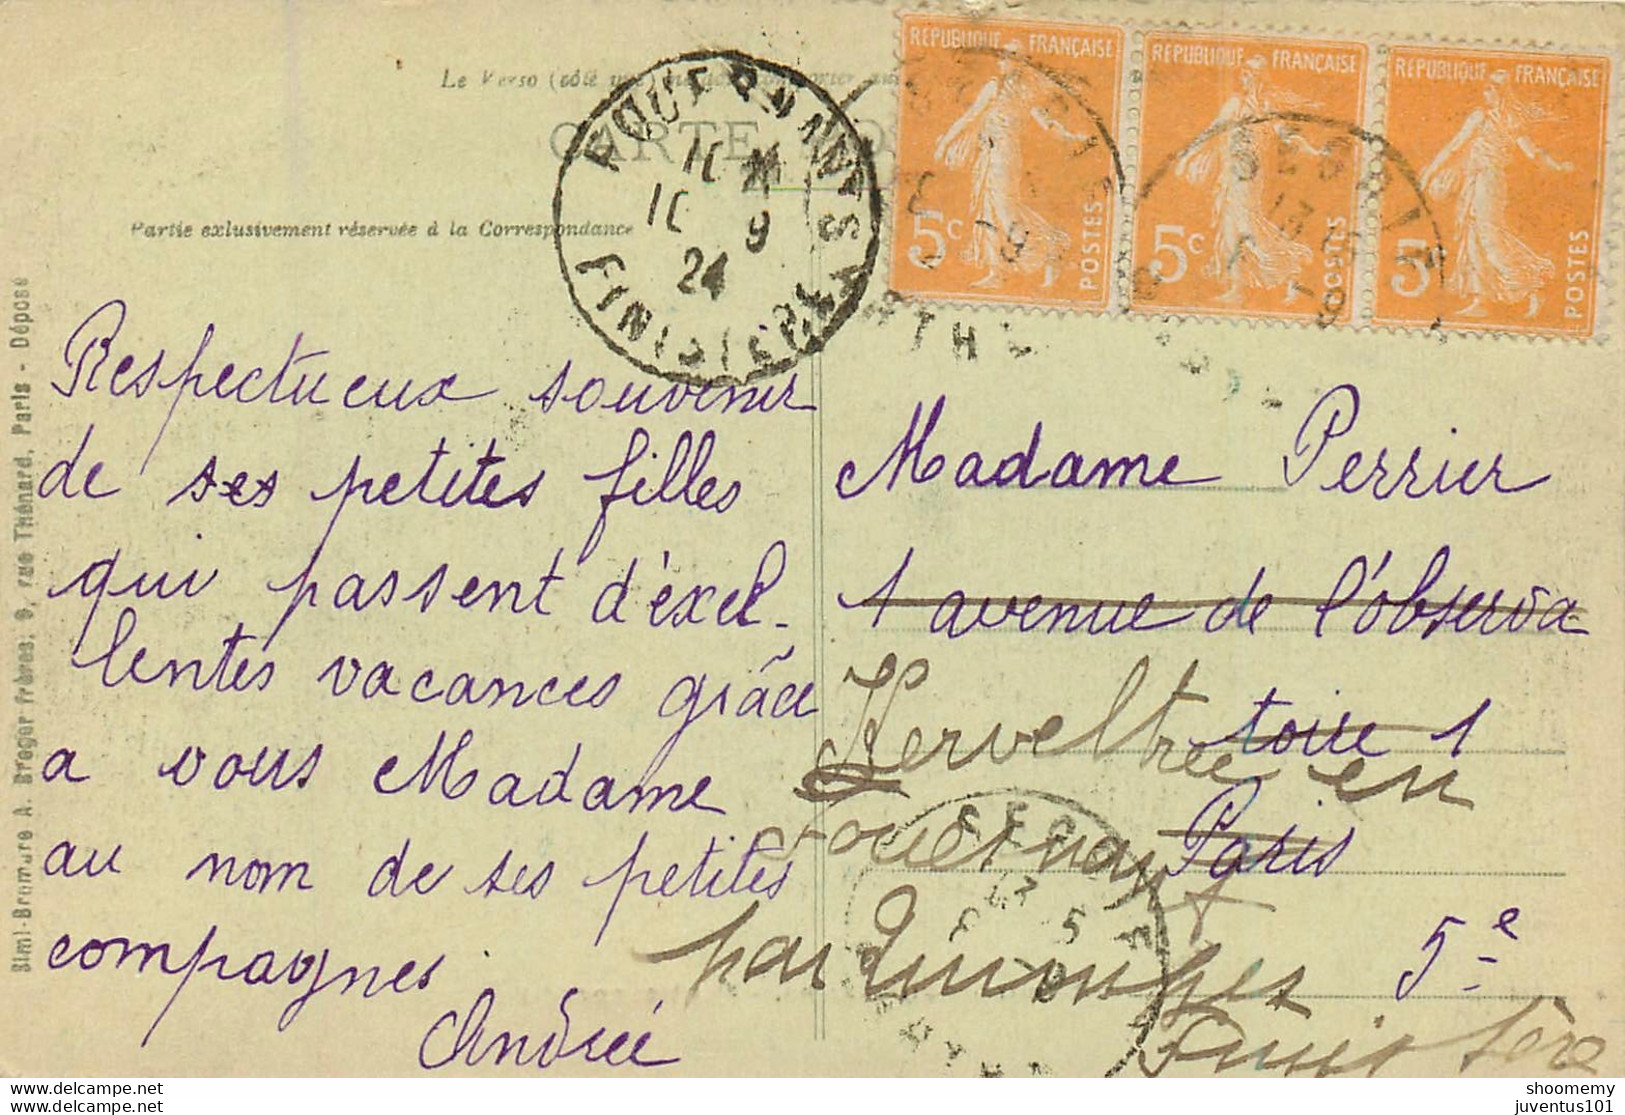 Le Verso (côté
CARTE
Partie exlusivement réservée à la Correspondance
REPUBLIQUE FRANÇAISE
5c
POSTES
REPUBLIQUE FRANÇAISE
5c
POSTES
REPUBLIQUE FRANÇAISE
5
POSTES
FOUESNANT
10
9
24
FINISTERE
SEGRIE
SARTHE
Respectueux souvenir
de ses petites filles
qui passent d'éxel-
lentes vacances grâce
a vous Madame
au nom de ses petites
compagnes
Andrée
Madame Perrier
1 avenue de l'observa
toire 1
Paris
5e
Kerveltrec en
Fouesnant
par Quimper
Finistère
Simi-Bromure A. Breger frères, 9, rue Thénard, Paris - Déposé
shoomemy
juventus101